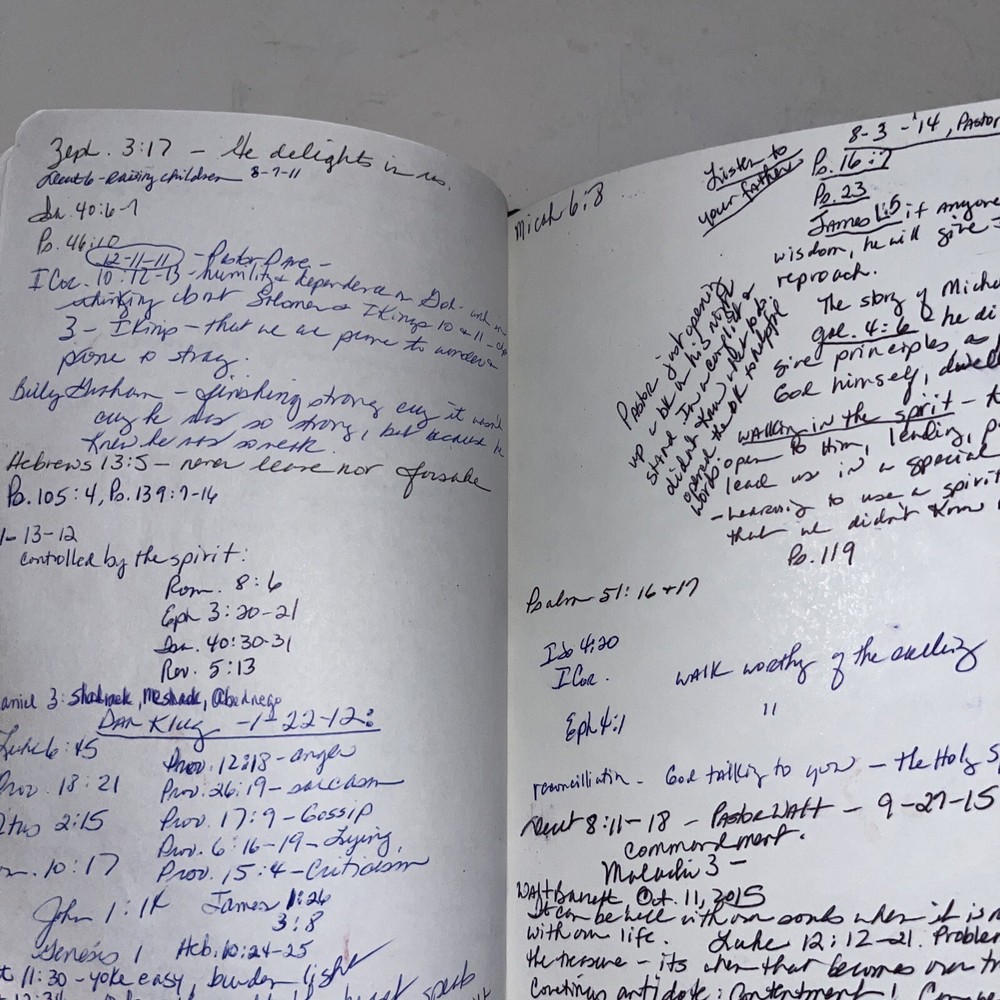 Zeph. 3:17 - He delights in us.
Deut 6 - raising children 8-7-11
Isa. 40:6-7
Ps. 46:10
12-11-11 - Pastor Dave -
I Cor. 10:12-13 - humility & dependence on God.
thinking about Solomon & I Kings 10 & 11 -
3 - I Kings - that we are prone to wander &
prone to stray.
Billy Graham - finishing strong cuz it wasn't
cuz he was so strong, but because he
knew he was so weak.
Hebrews 13:5 - never leave nor forsake
Ps. 105:4, Ps. 139:7-16
1-13-12
controlled by the spirit:
Rom. 8:6
Eph 3:20-21
Isa. 40:30-31
Rev. 5:13
aniel 3: Shadrack, Meshack, Abednego
Dan Klug -1-22-12:
Luke 6:45
Prov. 12:18 - anger
Prov. 18:21
Prov. 26:19 - sarcasm
Titus 2:15
Prov. 17:9 - Gossip
Prov. 6:16-19 - Lying,
10:17
Prov. 15:4 - Criticism
John 1:14
James 1:26
3:8
Genesis 1
Heb. 10:24-25
t 11:30 - yoke easy, burden light
12:34
heart speak
Micah 6:8
Listen to
your father
8-3-'14, Pastor
Ps. 16:7
Ps. 23
James 1:5 if anyone
wisdom, he will give -
reproach.
Pastor just opening
up a bk in his night
stand In a completely
didn't know, but to do
opened the bk to helpful
words.
The story of Micha
Gal. 4:6 - he di
give principles
God himself, dwell
walking in the spirit -
open to Him, leading, p
lead us in a special
- Learning to use a spirit
that we didn't know
Ps. 119
Psalm 51:16+17
Iso 4:20
I Cor.
walk worthy of the calling
Eph 4:1
"
reconcilliation - God talking to you - the Holy Sp
Deut 8:11-18 - Pastor Walt - 9-27-15
commandment.
Malachi 3 -
Walt Barrett, Oct. 11, 2015
It can be well with our souls when it is n
with our life. Luke 12:12-21. Problem
the treasure - its when that becomes our tr
Coveting antidote: Contentment!